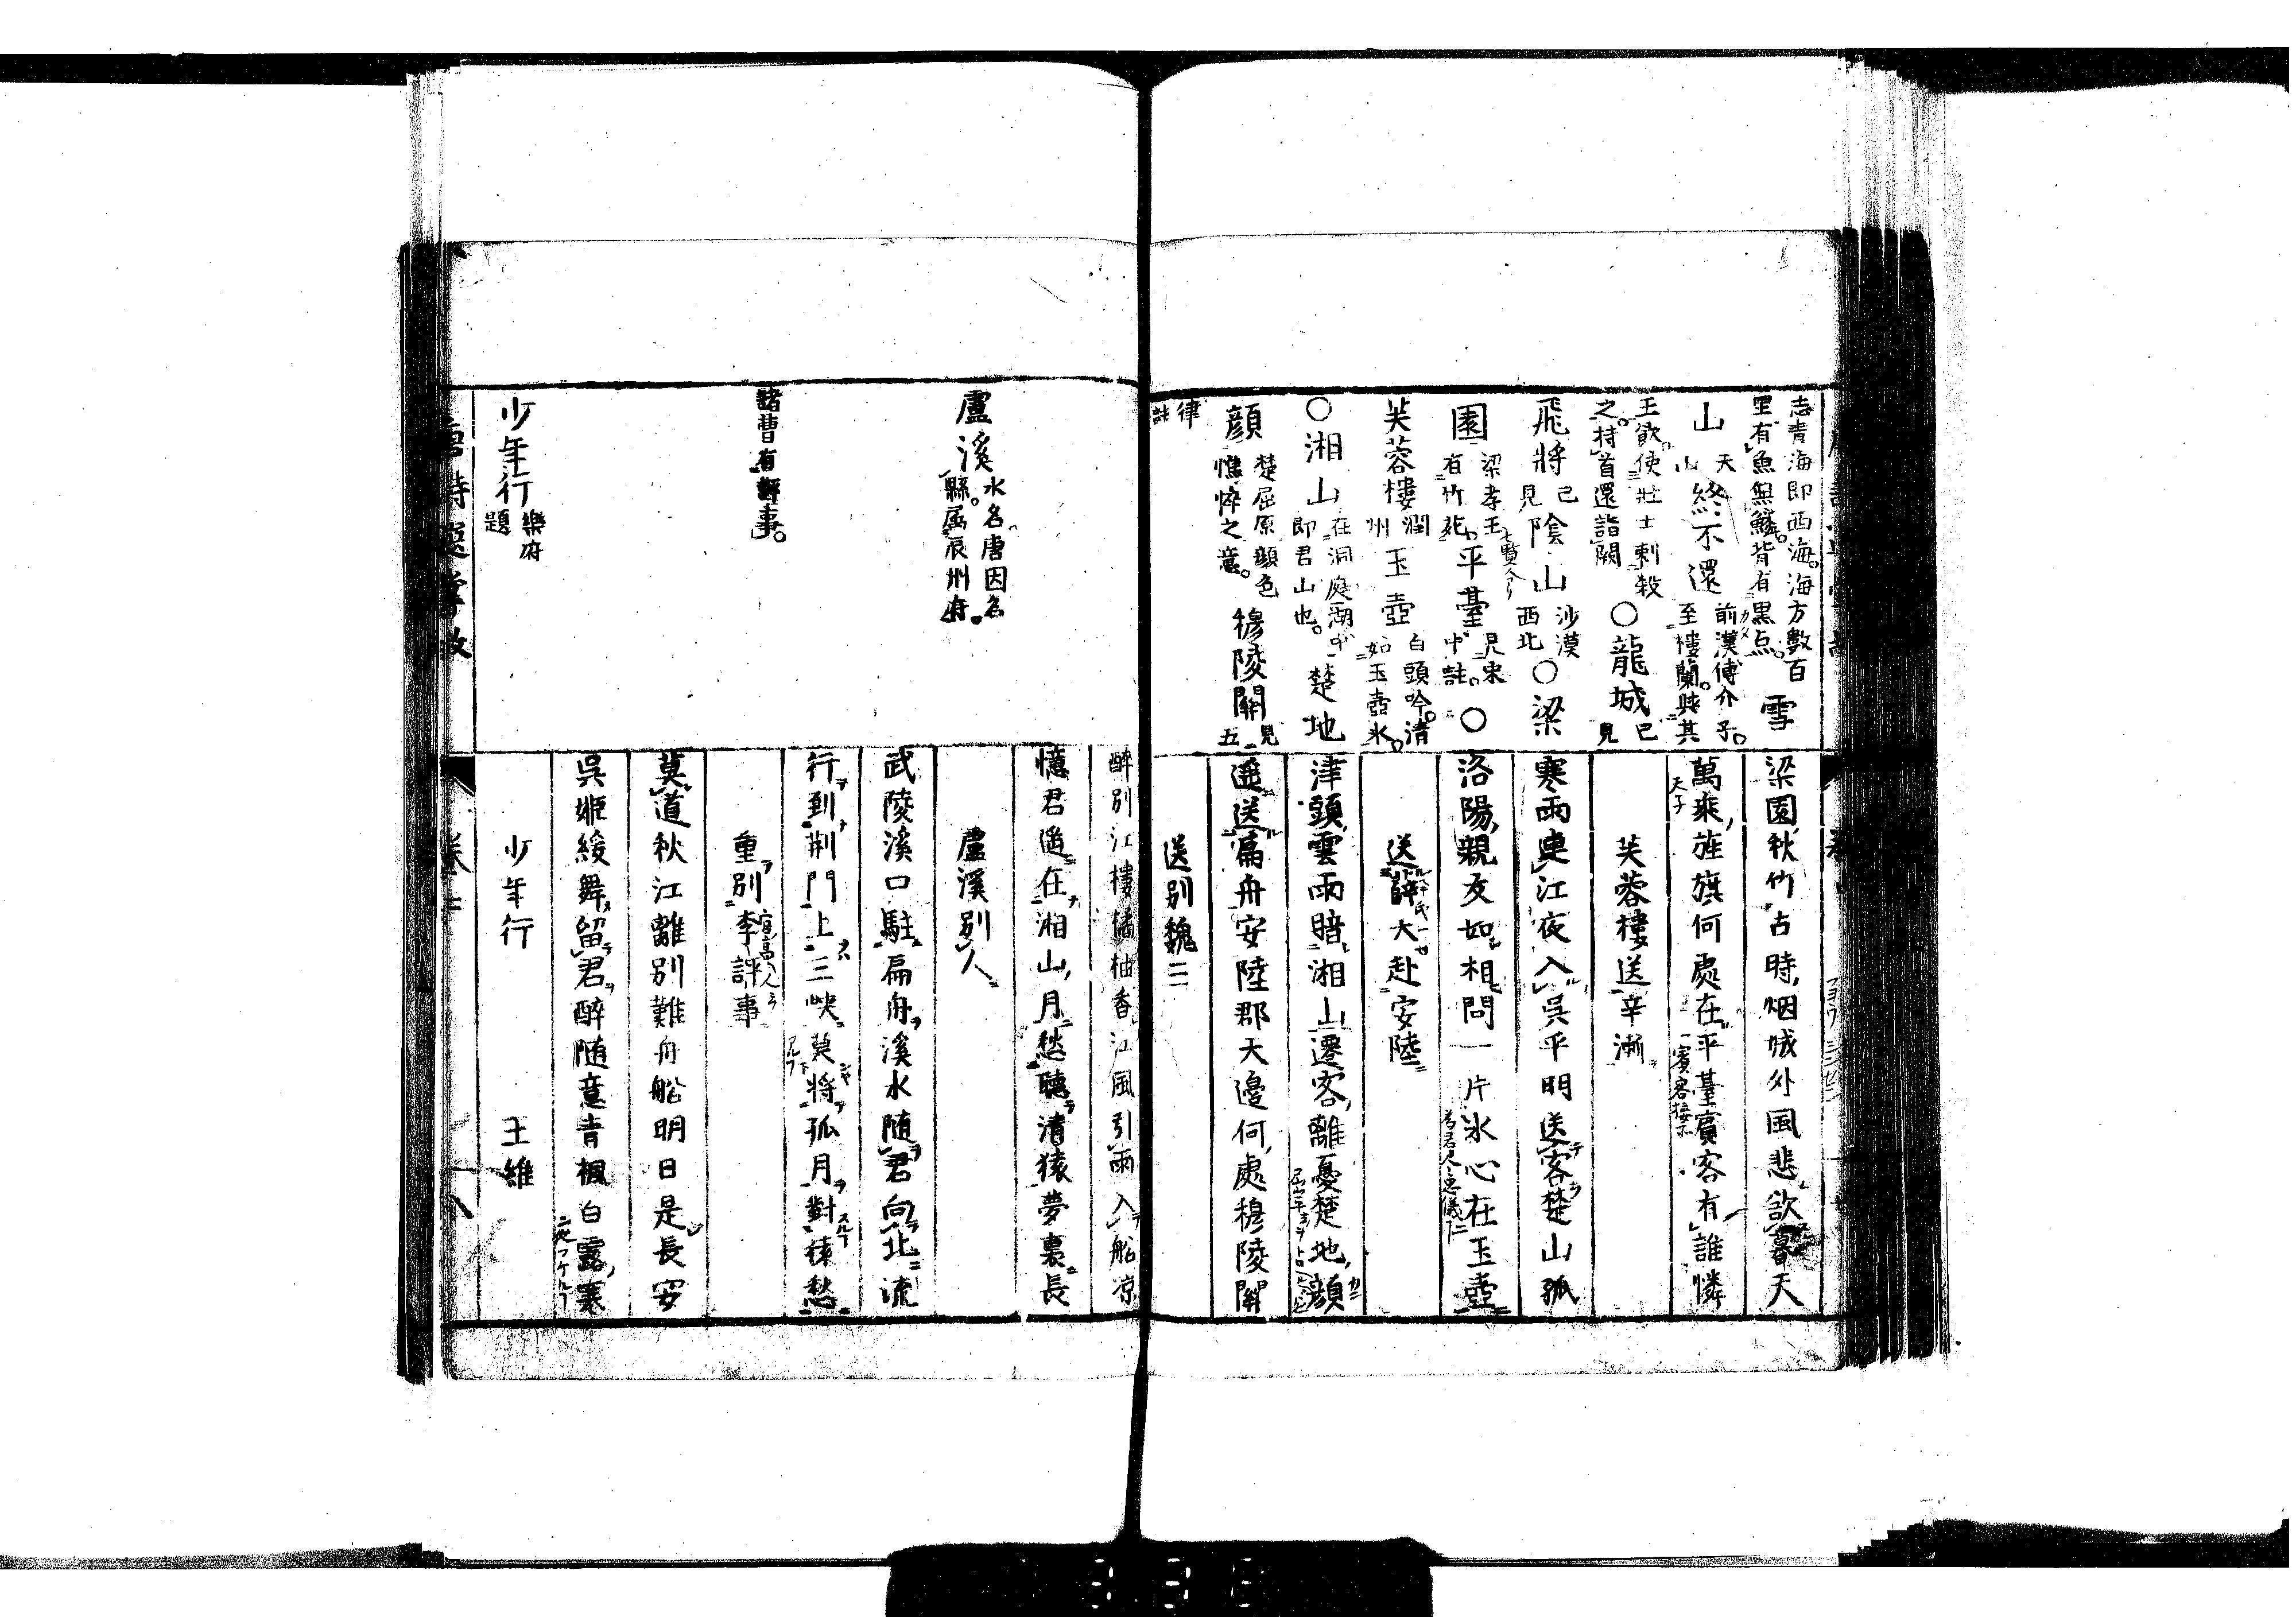 志青海即西海。海方數百
里有魚無鱗背有黒点。 雪
山 天山 終不還 前漢傅介子。
至樓蘭與其
王飲。使壯士刺殺
之。持首還詣闕 〇龍城 已見
飛將 已見 陰山 沙漠西北 〇梁
園 梁孝王有竹苑。 平臺 見宋中註。 〇
芙蓉樓 潤州 玉壺 白頭吟。清如玉壺氷。
〇湘山 在洞庭湖中即君山也。 楚地
顔 楚屈原顔色憔悴之意。 穆陵關 見五
律註
梁園秋竹古時烟城外風悲欲暮天
萬乘旌旗何處在平臺賓客有誰憐
芙蓉樓送辛漸
寒雨連江夜入吳平明送客楚山孤
洛陽親友如相問一片氷心在玉壺
送薛大赴安陸
津頭雲雨暗湘山遷客離憂楚地顔
遥送扁舟安陸郡天邊何處穆陵關
送別魏二
盧溪 水名。唐因名縣。属辰州府。
諸曹有評事。
少年行 樂府題
醉別江樓橘柚香江風引雨入船凉
憶君遥在湘山月愁聽清猿夢裏長
盧溪別人
武陵溪口駐扁舟溪水随君向北流
行到荆門上三峽莫將孤月對猿愁
重別李評事
莫道秋江離別難舟船明日是長安
吳姬緩舞留君醉随意青楓白露寒
少年行 王維
唐詩選掌故